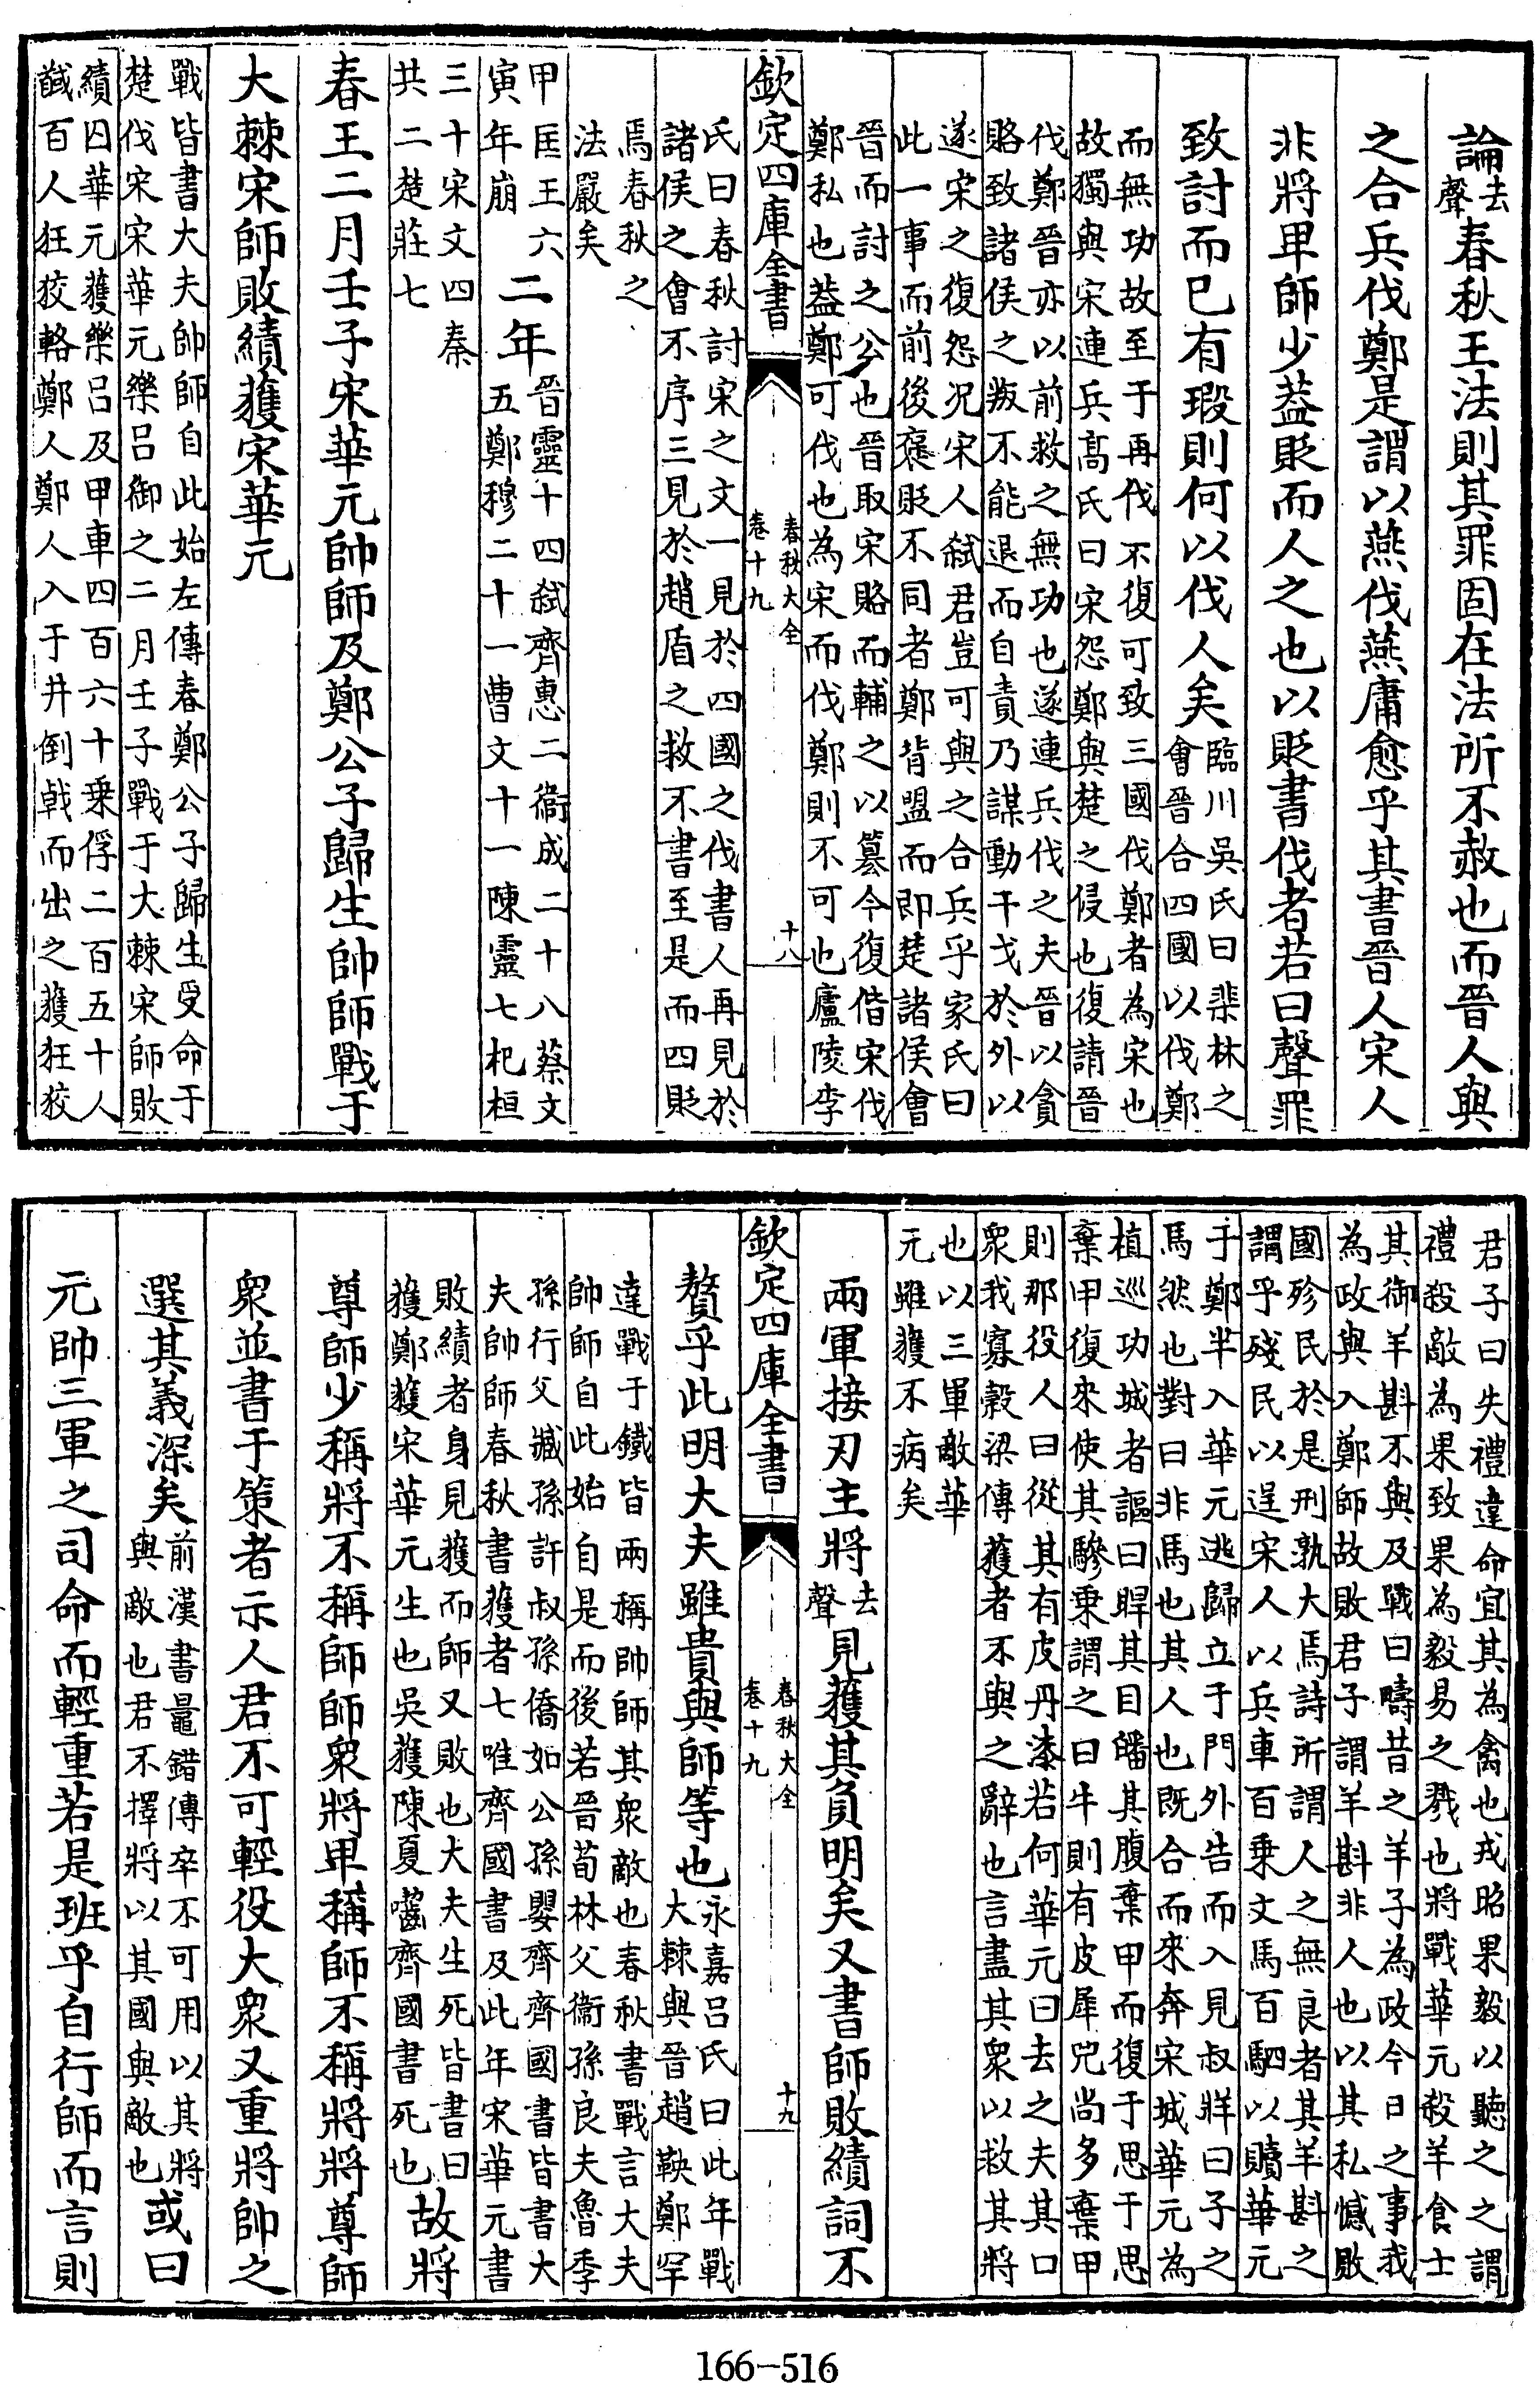 論去聲春秋王法則其罪固在法所不赦也而晉人與
之合兵伐鄭是謂以燕伐燕庸愈乎其書晉人宋人
非將卑師少葢貶而人之也以貶書伐者若曰聲罪
致討而已有瑕則何以伐人矣臨川吳氏曰棐林之
會晉合四國以伐鄭
而無功故至于再伐不復可致三國伐鄭者為宋也
故獨與宋連兵髙氏曰宋怨鄭與楚之侵也復請晉
伐鄭晉亦以前救之無功也遂連兵伐之夫晉以貪
賂致諸侯之叛不能退而自責乃謀動干戈於外以
遂宋之復怨况宋人弑君豈可與之合兵乎家氏曰
此一事而前後褒貶不同者鄭背盟而即楚諸侯會
晉而討之公也晉取宋賂而輔之以簒今復偕宋伐
鄭私也葢鄭可伐也為宋而伐鄭則不可也廬陵李
欽定四庫全書
春秋大全
卷十九
十八
氏曰春秋討宋之文一見於四國之伐書人再見於
諸侯之會不序三見於趙盾之救不書至是而四貶
焉春秋之
法嚴矣
甲匡王六
寅年崩
二年
晉靈十四弑齊惠二衞成二十八蔡文
五鄭穆二十一曹文十一陳靈七杞桓
三十宋文四秦
共二楚莊七
春王二月壬子宋華元帥師及鄭公子歸生帥師戰于
大棘宋師敗績獲宋華元
戰皆書大夫帥師自此始左傳春鄭公子歸生受命于
楚伐宋宋華元樂呂御之二月壬子戰于大棘宋師敗
績囚華元獲樂呂及甲車四百六十乗俘二百五十人
馘百人狂狡輅鄭人鄭人入于井倒戟而出之獲狂狡
君子曰失禮違命宜其為禽也戎昭果毅以聽之之謂
禮殺敵為果致果為毅易之戮也將戰華元殺羊食士
其御羊斟不與及戰曰疇昔之羊子為政今日之事我
為政與入鄭師故敗君子謂羊斟非人也以其私憾敗
國殄民於是刑孰大焉詩所謂人之無良者其羊斟之
謂乎殘民以逞宋人以兵車百乗文馬百駟以贖華元
于鄭半入華元逃歸立于門外告而入見叔牂曰子之
馬然也對曰非馬也其人也既合而來奔宋城華元為
植巡功城者謳曰睅其目皤其腹棄甲而復于思于思
棄甲復來使其驂乗謂之曰牛則有皮犀兕尚多棄甲
則那役人曰從其有皮丹漆若何華元曰去之夫其口
衆我寡榖梁傳獲者不與之辭也言盡其衆以救其將
也以三軍敵華
元雖獲不病矣
兩軍接刃主將去聲見獲其負明矣又書師敗績詞不
欽定四庫全書
春秋大全
卷十九
十九
贅乎此明大夫雖貴與師等也永嘉呂氏曰此年戰
大棘與晉趙鞅鄭罕
達戰于鐵皆兩稱帥師其衆敵也春秋書戰言大夫
帥師自此始自是而後若晉荀林父衞孫良夫魯季
孫行父臧孫許叔孫僑如公孫嬰齊齊國書皆書大
夫帥師春秋書獲者七唯齊國書及此年宋華元書
敗績者身見獲而師又敗也大夫生死皆書曰
獲鄭獲宋華元生也吳獲陳夏齧齊國書死也
故將
尊師少稱將不稱師師衆將卑稱師不稱將將尊師
衆並書于策者示人君不可輕役大衆又重將帥之
選其義深矣前漢書鼂錯傳卒不可用以其將
與敵也君不擇將以其國與敵也
或曰
元帥三軍之司命而輕重若是班乎自行師而言則
166-516